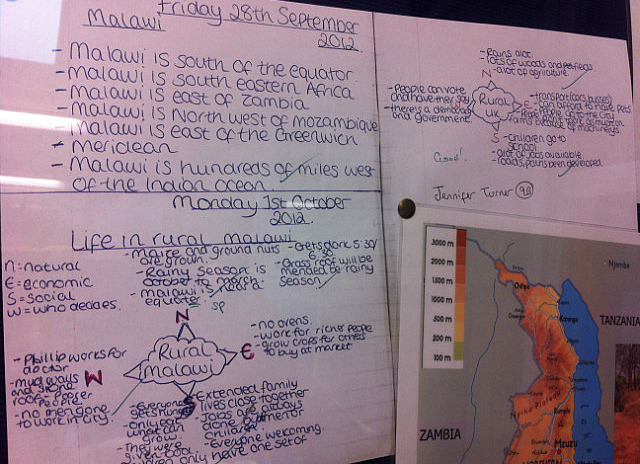 Friday 28th September
2012
Malawi
- Malawi is south of the equator
- Malawi is south eastern Africa
- Malawi is east of Zambia
- Malawi is North west of Mozambique
- Malawi is east of the Greenwich
- meridean
- Malawi is hundreds of miles west
of the Indian ocean.
Monday 1st October
2012.
Life in rural Malawi
N = natural
E = economic
S = social
W = who decides
- Maize and ground nuts
are grown.
- Rainy season is
october to march
- malawi is near a
equator
sp
- Gets dark 5:30/
6:30
- Grass roof will be
mended b4 rainy
season
N
Rural
malawi
E
- no ovens.
- work for richer people
- grow crops for others
to buy at market
W
- Phillip works for
doctor
- mud ways
and
roof - poorer
people
- no men gone
to work in city.
S
- everyone
gets hungry
- only eat
what can
grow.
- They were
Extended family
lives close together
- Jobs are always
done
children
- everyone welcoming.
only have one set of
- Rains alot
- lots of woods and
- alot of agriculture
N
- People can vote
and have they say
- there's a
and government.
W
Rural
UK
E
- transport (cars, buses)
- can afford to have pets
people go to the city
farms
of machinerys
S
- children go to
school
- alot of jobs available
- roads, paths been developed
Good!
Jennifer Turner 9B
3000 m
2000 m
1500 m
1000 m
500 m
200 m
100 m
Njombe
Chitipa
Karonga
TANZANIA
Nyika Plateau
Rumphi
Mzuzu
ZAMBIA